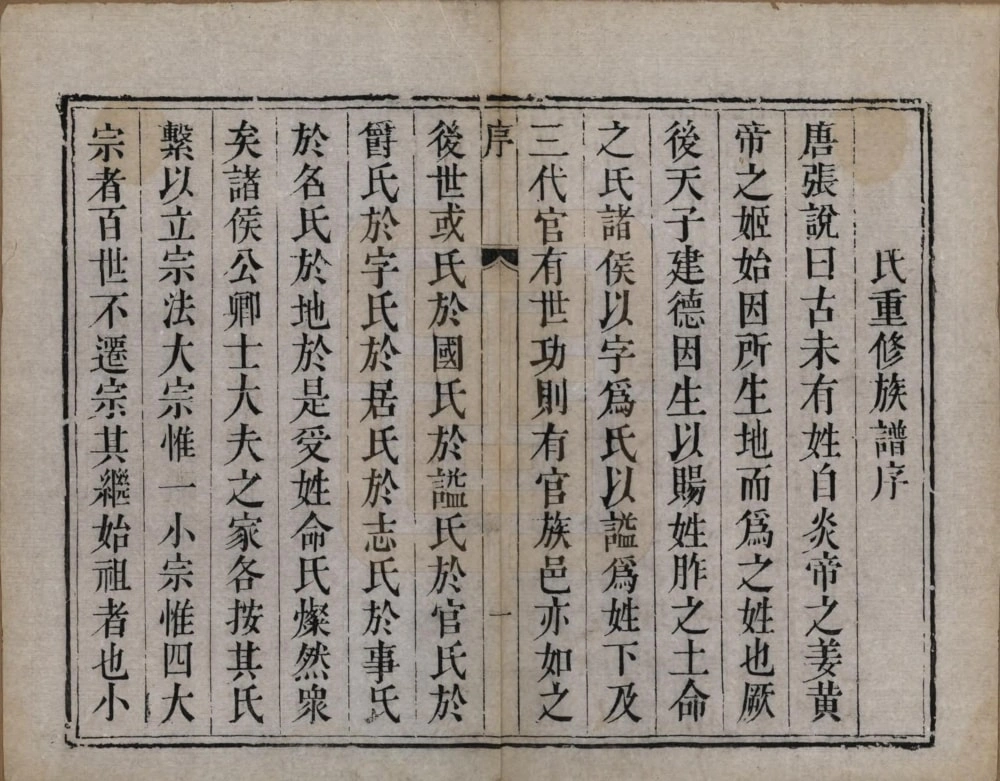 氏重修族譜序
唐張說曰古未有姓自炎帝之姜黄
帝之姬始因所生地而爲之姓也厥
後天子建德因生以賜姓胙之土命
之氏諸侯以字爲氏以謚爲姓下及
三代官有世功則有官族邑亦如之
序
一
後世或氏於國氏於謚氏於官氏於
爵氏於字氏於居氏於志氏於事氏
於名氏於地於是受姓命氏燦然衆
矣諸侯公卿士大夫之家各按其氏
繫以立宗法大宗惟一小宗惟四大
宗者百世不遷宗其繼始祖者也小